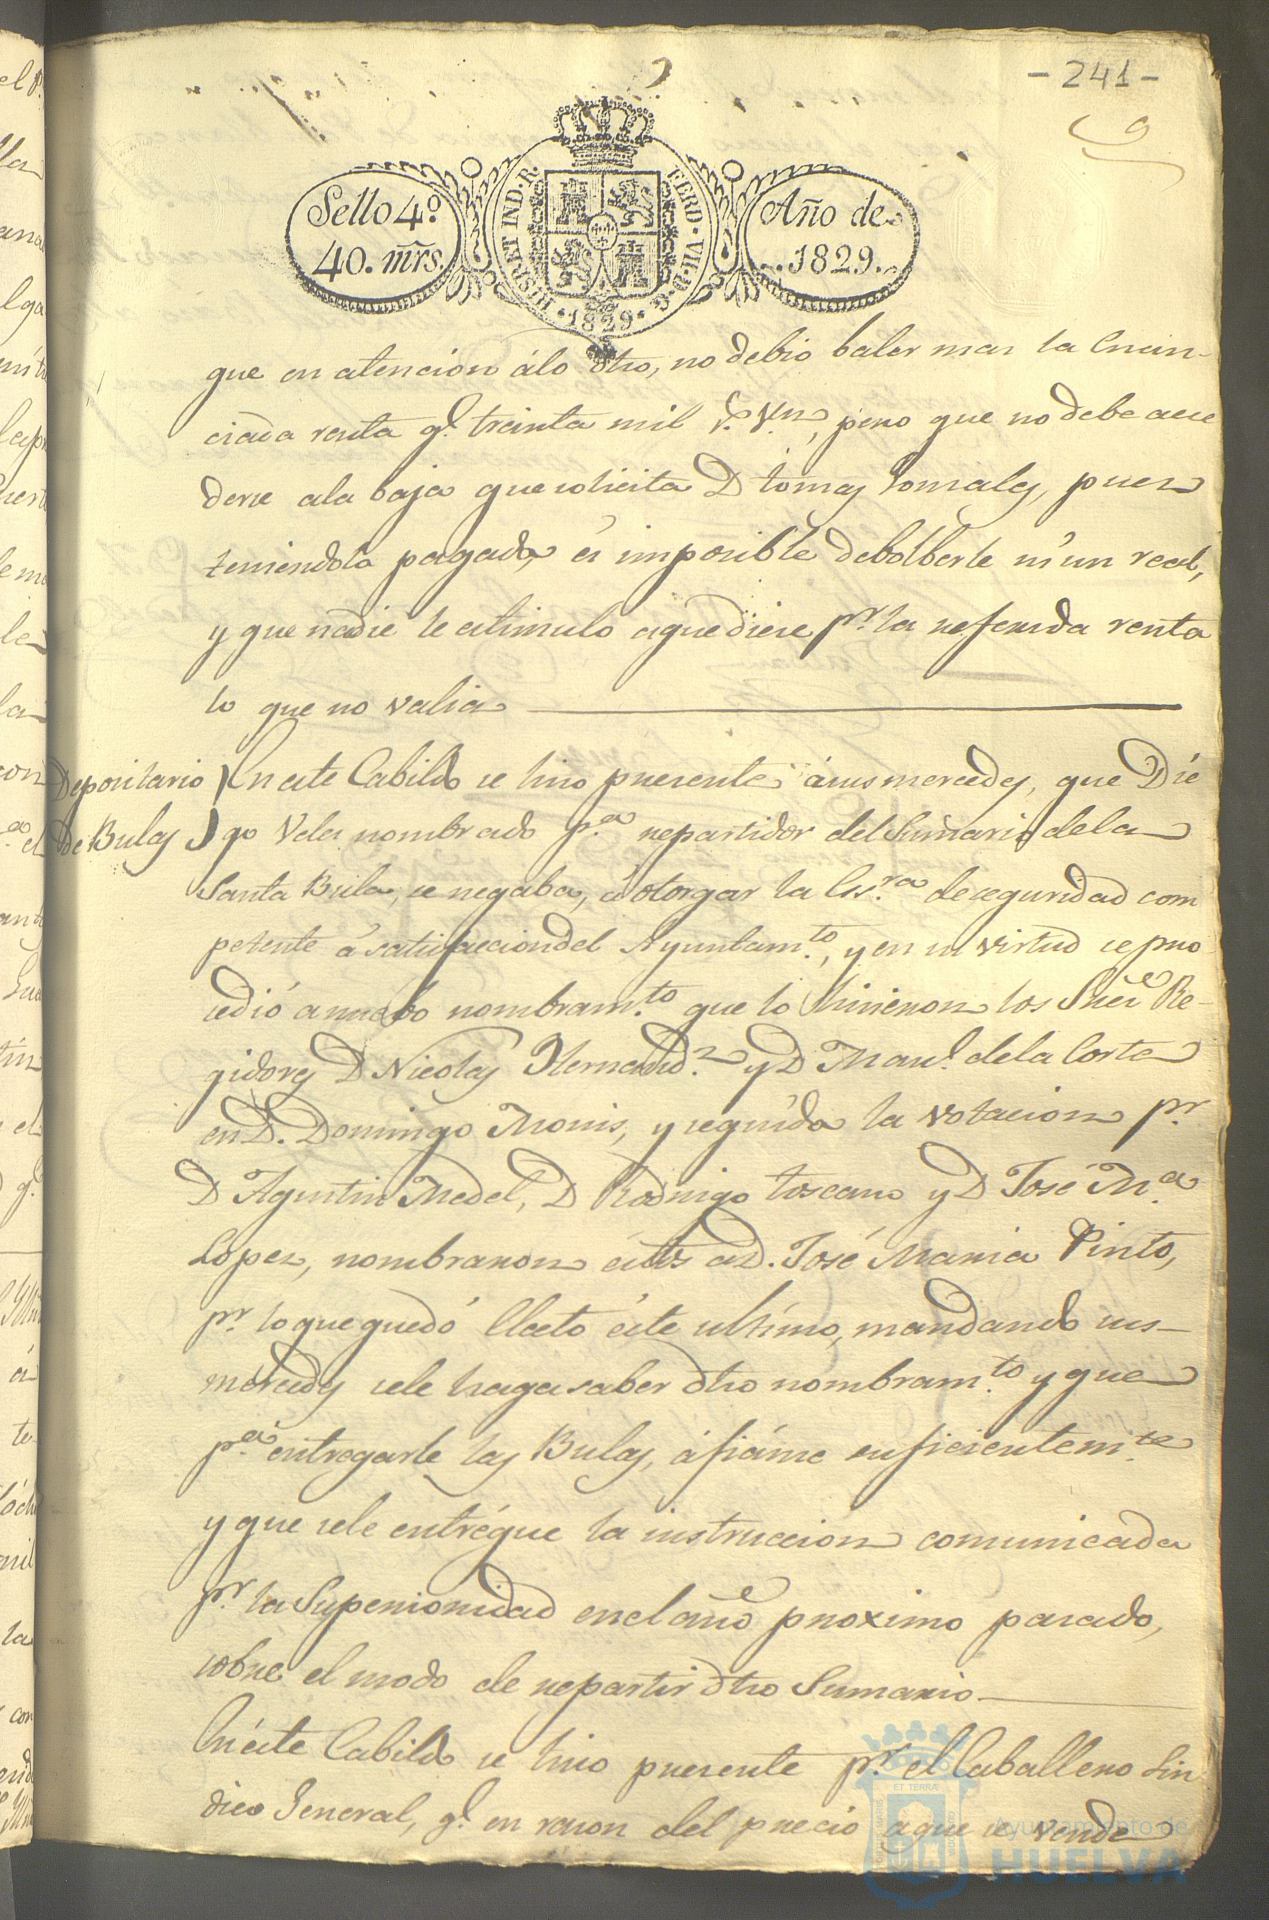 - 241 -
9
Sello 4º
40. mrs.
HISP. ET IND. R.
FERD. VII. D. G.
1829
Año de
1829.
que en atencion álo dho, no debio baler mas la Enun-
ciada renta q.e treinta mil r.s v.n, pero que no debe acce
derse ala baja que solicita D Tomas Gonzales, pues
teniendola pagada, és imposible debolberle ni un real,
y que nadie le estimulo aque diese p.r la referida renta
lo que no valia
Depositario
de Bulas
En este Cabildo se hiso presente ásus mercedes, que Die
go Veles nombrado p.a repartidor del Sumario dela
Santa Bula, se negaba, á otorgar la Ess.ra de seguridad com
petente á satisfaccion del Ayuntam.to, y en su virtud se pro
cedió a nuebo nombram.to que lo hisieron los Sres Re-
gidores D Nicolas Hernand.z y D Man.l dela Corte
en D. Domingo Monis, y seguída la votacion p.r
D Agustin Medel, D Rodrigo Toscano y D José M.a
Lopez, nombraron éstos a D. José Maria Pinto,
p.r lo que quedó Electo éste ultímo, mandando sus
mércedes sele haga saber dho nombram.to y que
p.a entregarle las Bulas, áfiánse suficientem.te
y que sele entrégue la instruccion comunicada
p.r la Superioridad en el año proximo pasado,
sobre el modo de repartir dho Sumario
En éste Cabildo se hiso presente p.r el Caballero Sin
dico General, q.e en rason del precio a que se vende
ET TERRÆ
Ayuntamiento de
HUELVA